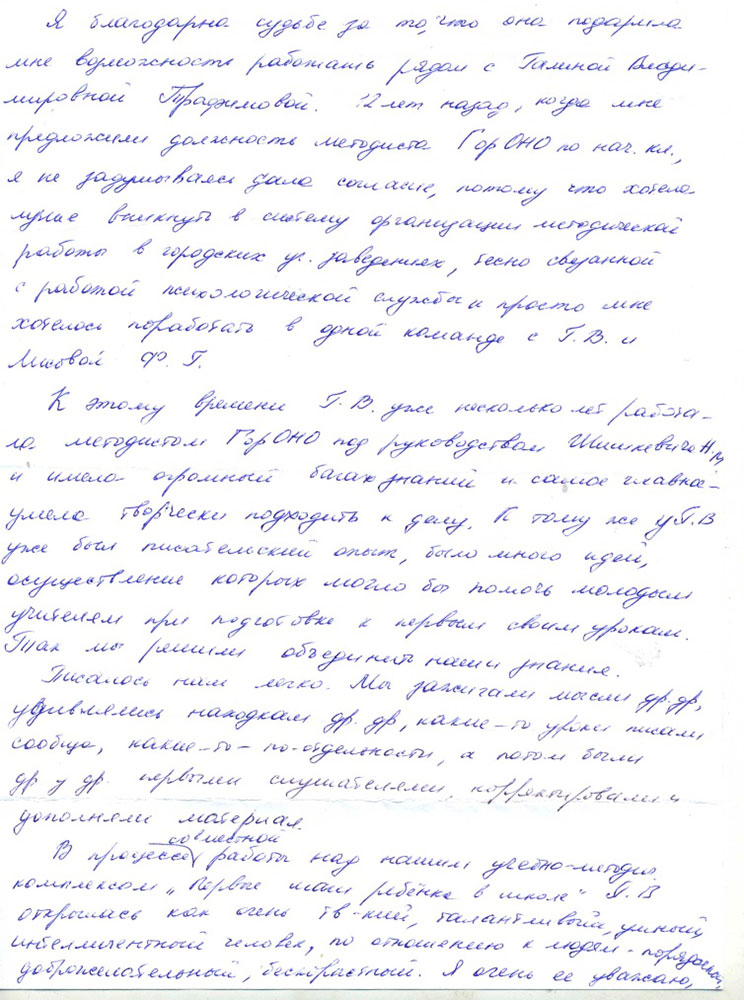 Я благодарна судьбе за то, что она подарила
мне возможность работать рядом с Галиной Влади-
мировной Трафимовой. 12 лет назад, когда мне
предложили должность методиста ГорОНО по нач. кл.,
я не задумываясь дала согласие, потому что хотела
лучше вникнуть в систему организации методической
работы в городских уч. заведениях, тесно связанной
с работой психологической службы и просто мне
хотелось поработать в одной команде с Г.В. и
Ф. Г.
К этому времени Г.В. уже несколько лет работа-
ла методистом ГорОНО под руководством Шишкевича Н.М.
и имела огромный багаж знаний и самое главное -
умела творчески подходить к делу. К тому же у Г.В
уже был писательский опыт, было много идей,
осуществление которых могло бы помочь молодым
учителям при подготовке к первым своим урокам.
Так мы решили объединить наши знания.
Писалось нам легко. Мы зажигали мысли др. др,
удивлялись находкам др. др, какие-то уроки писали
сообща, какие-то - по-отдельности, а потом были
др у др. первыми слушателями, корректировали и
дополняли материал.
В процессе совместной работы над нашим учебно-методич.
комплексом „Первые шаги ребёнка в школе" Г.В
открылась как очень тв-кий, талантливый, умный,
интеллигентный человек, по отношению к людям - порядочный,
доброжелательный, бескорыстный. Я очень её уважаю,